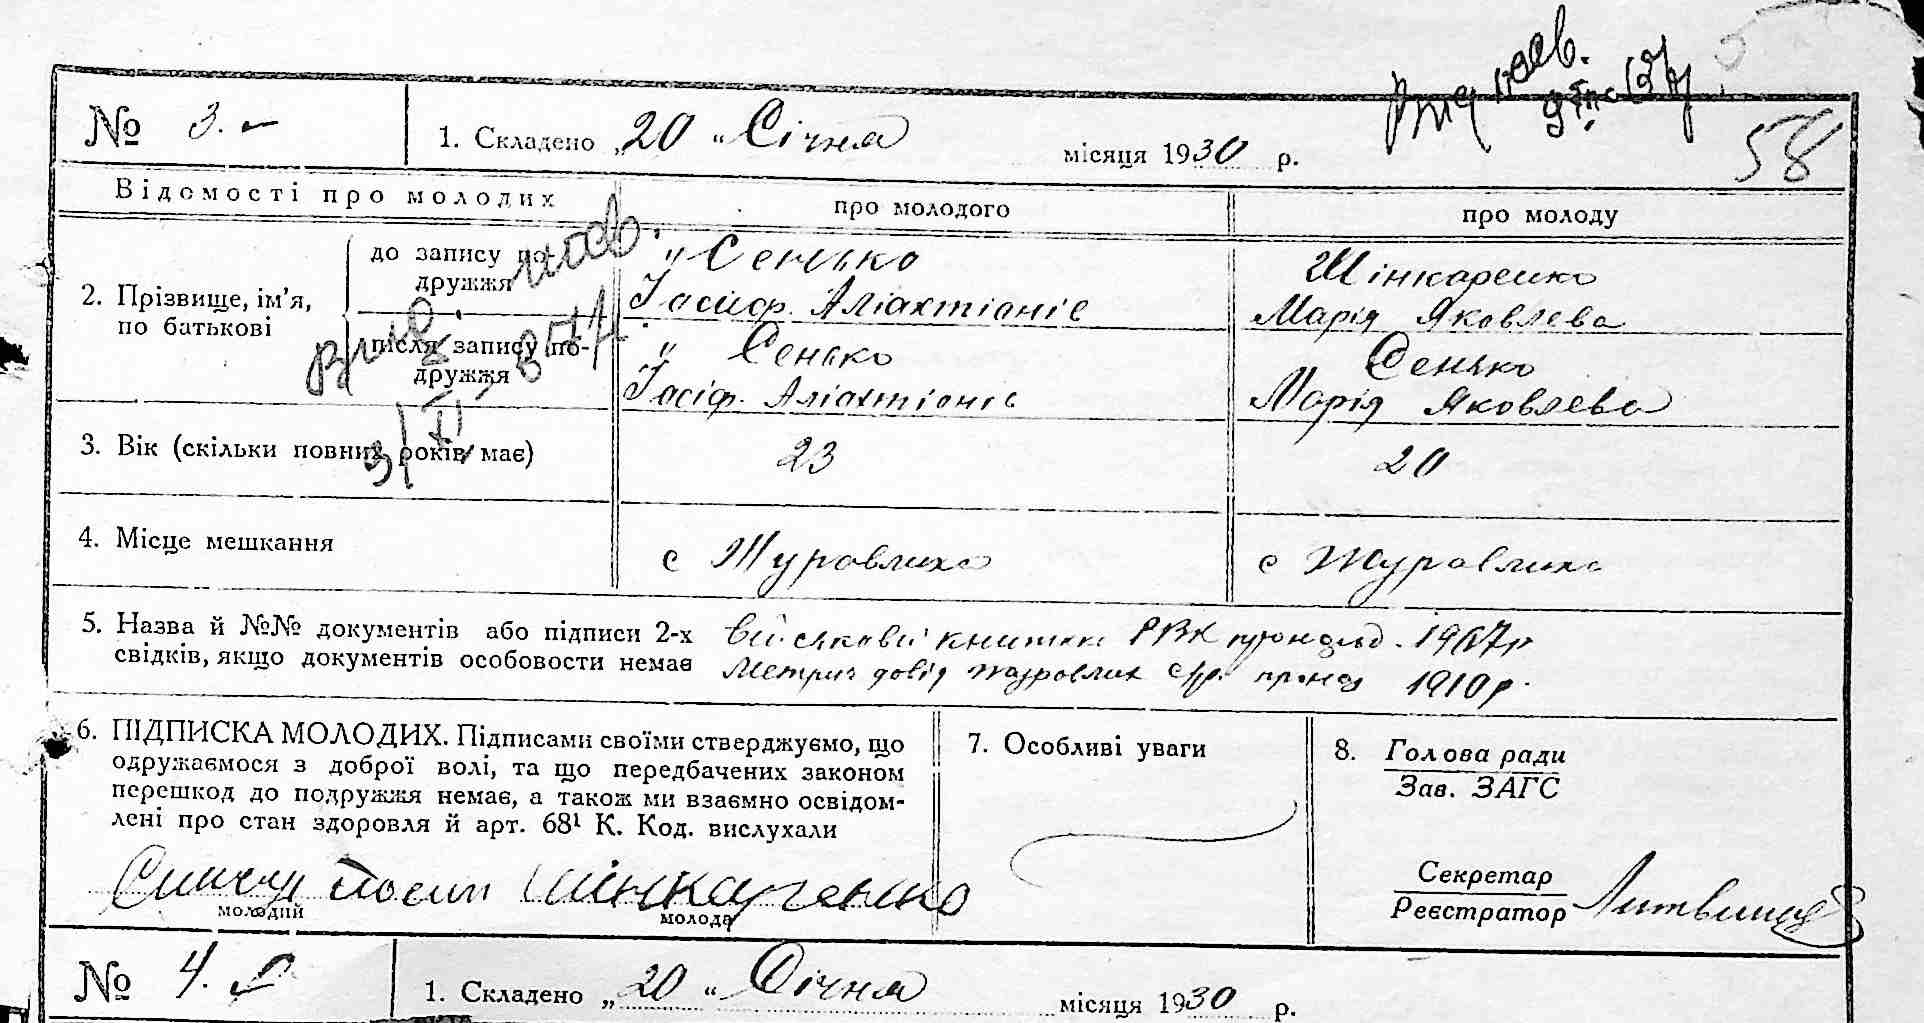 58
№ 3.
1. Складено „20" Січня місяця 1930 р.
Відомості про молодих
про молодого
про молоду
2. Прізвище, ім'я, по батькові
до запису по-
дружжя
Сенько
Іосиф. Аліахтіоніє
Шінкаренко
Марія Яковлева
після запису по-
дружжя
Сенько
Іосіф. Аліахтіоніє
Сенько
Марія Яковлева
3. Вік (скільки повних років має)
23
20
4. Місце мешкання
с Журовлиха
с Журовлиха
5. Назва й №№ документів або підписи 2-х
свідків, якщо документів особовости немає
Військовий книжка РВК
Метрич довід 1910 р.
6. ПІДПИСКА МОЛОДИХ. Підписами своїми стверджуємо, що
одружаємося з доброї волі, та що передбачених законом
перешкод до подружжя немає, а також ми взаємно освідом-
лені про стан здоровля й арт. 68¹ К. Код. вислухали
Йосип Шінкаренко
молодий
молода
7. Особливі уваги
8. Голова ради
Зав. ЗАГС
Секретар
Реєстратор
№ 4.
1. Складено „20" Січня місяця 1930 р.